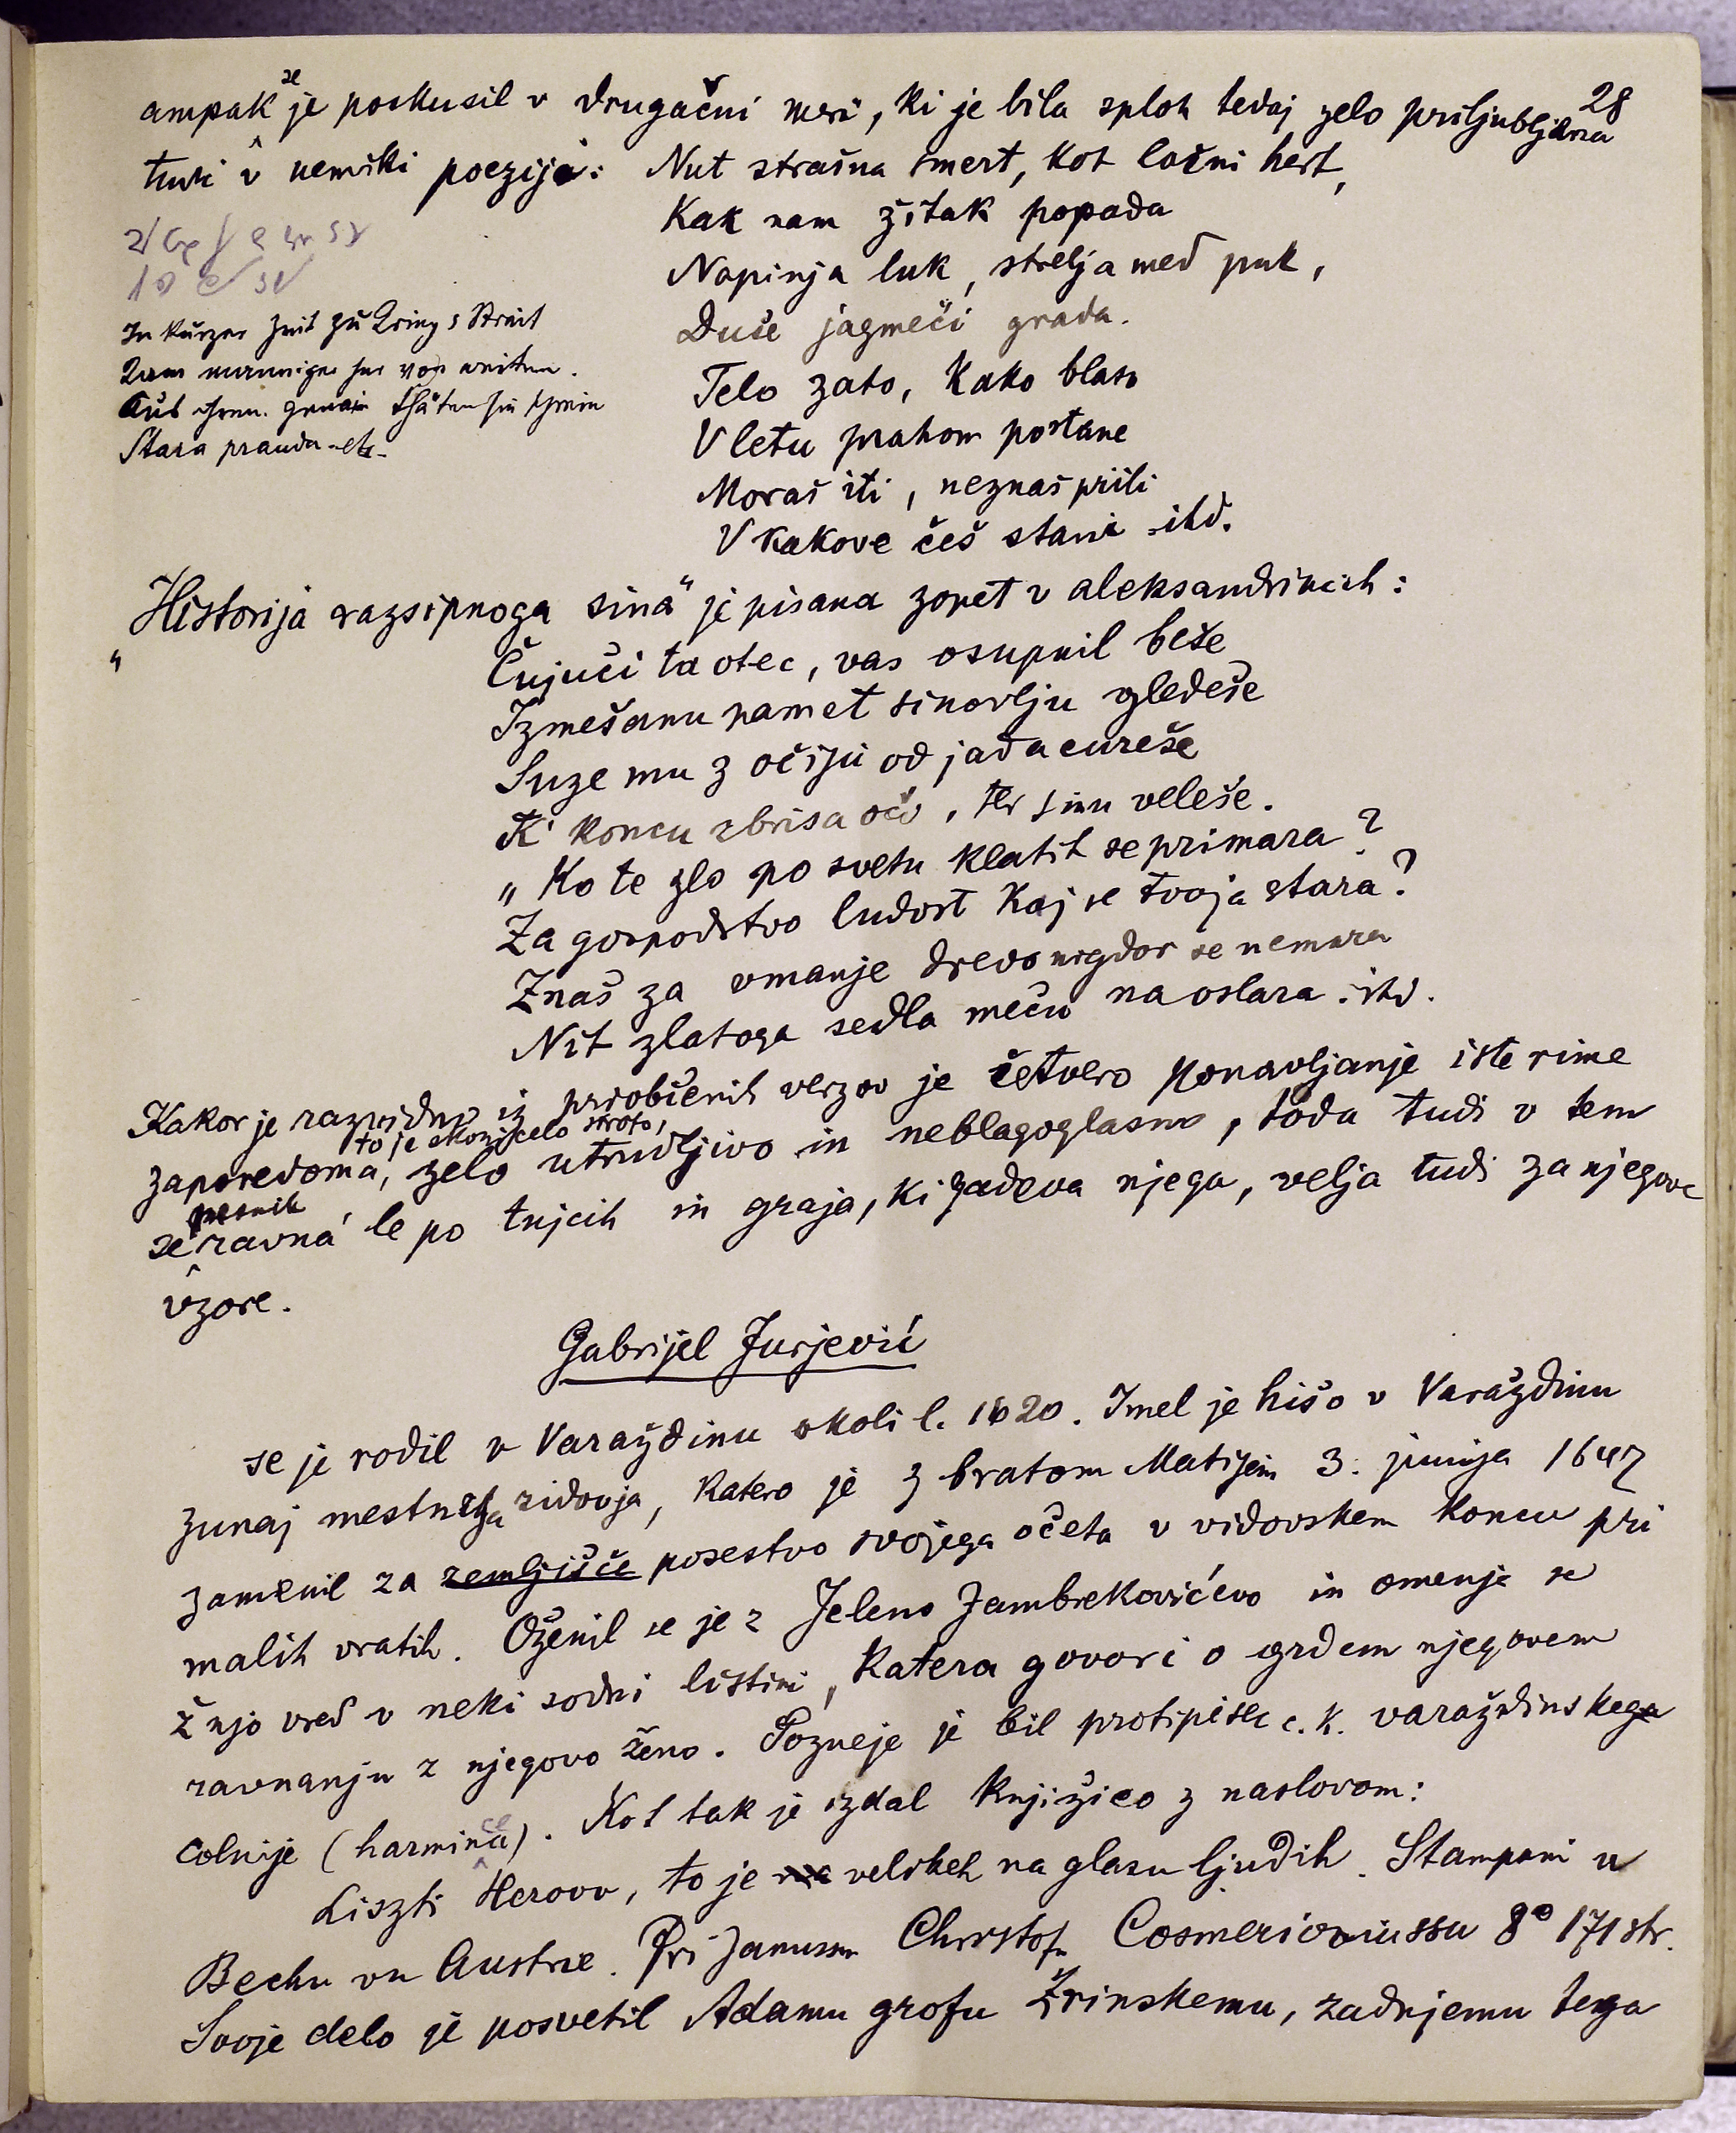 28
ampak se je poskusil v drugačni meri, ki je bila sploh tedaj zelo priljubljena
tudi v nemški poeziji:
Nut strašna smert, kot lačni hert,
Kak nam žitak popada
Napinja luk, strelja med puk,
Duše jagmeči grada.
Telo zato, kako blato
V letu prahom postane
Moraš iti, neznaš priti
V kakove češ stani itd.
In kurzer Zeit zu
von weiten.
Stara pravda etc.
„Historija razsipnoga sina“ je pisana zopet v aleksandrincih:
Čujuči ta otec, vas osupnil beše
Izmešanu pamet sinovlju gledeše
Suze mu z očiju od jada cureše
K koncu zbrisa oči, ter sinu veleše.
„Ko te zlo po svetu klatit se primara?
Za gospodstvo ludost kaj se tvoja stara?
Znaš za vmanje drevo nigdor se nemara
Nit zlatoga sedla meču na oslara. itd.
Kakor je razvidno iz priobčenih verzov je četvero ponavljanje iste rime
zaporedoma, to je skozi celo stroto, zelo utrudljivo in neblagoglasno, toda tudi v tem
se pesnik ravna le po tujcih in graja, ki zadeva njega, velja tudi za njegove
vzore.
Gabrijel Jurjević
se je rodil v Varaždinu okoli l. 1620. Imel je hišo v Varaždinu
zunaj mestnega zidovja, katero je z bratom Matijem 3. junija 1647
zamenil za zemljišče posestvo svojega očeta v vidovskem koncu pri
malih vratih. Oženil se je z Jeleno Zambrekovićevo in omenja se
ž njo vred v neki sodni listini, katera govori o grdem njegovem
ravnanju z njegovo ženo. Pozneje je bil protipisec c. k. varaždinskega
colnije (harmince). Kot tak je izdal knjižico z naslovom:
Liszti Heroov, to je velikeh na glasu ljudih. Stampani u
Bechu vu Austrie. Pri Janussu Christofu Cosmerioviussu 8° 171 str.
Svoje delo je posvetil Adamu grofu Zrinskemu, zadnjemu tega